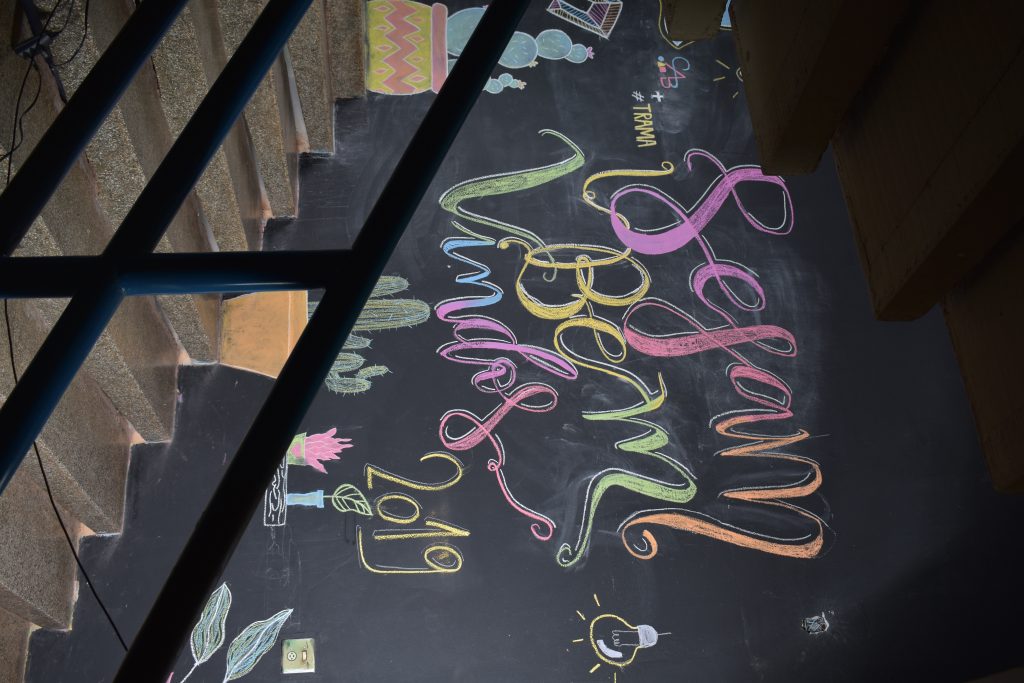 #TRAMA
Sejam
Bem
Vindos
2019